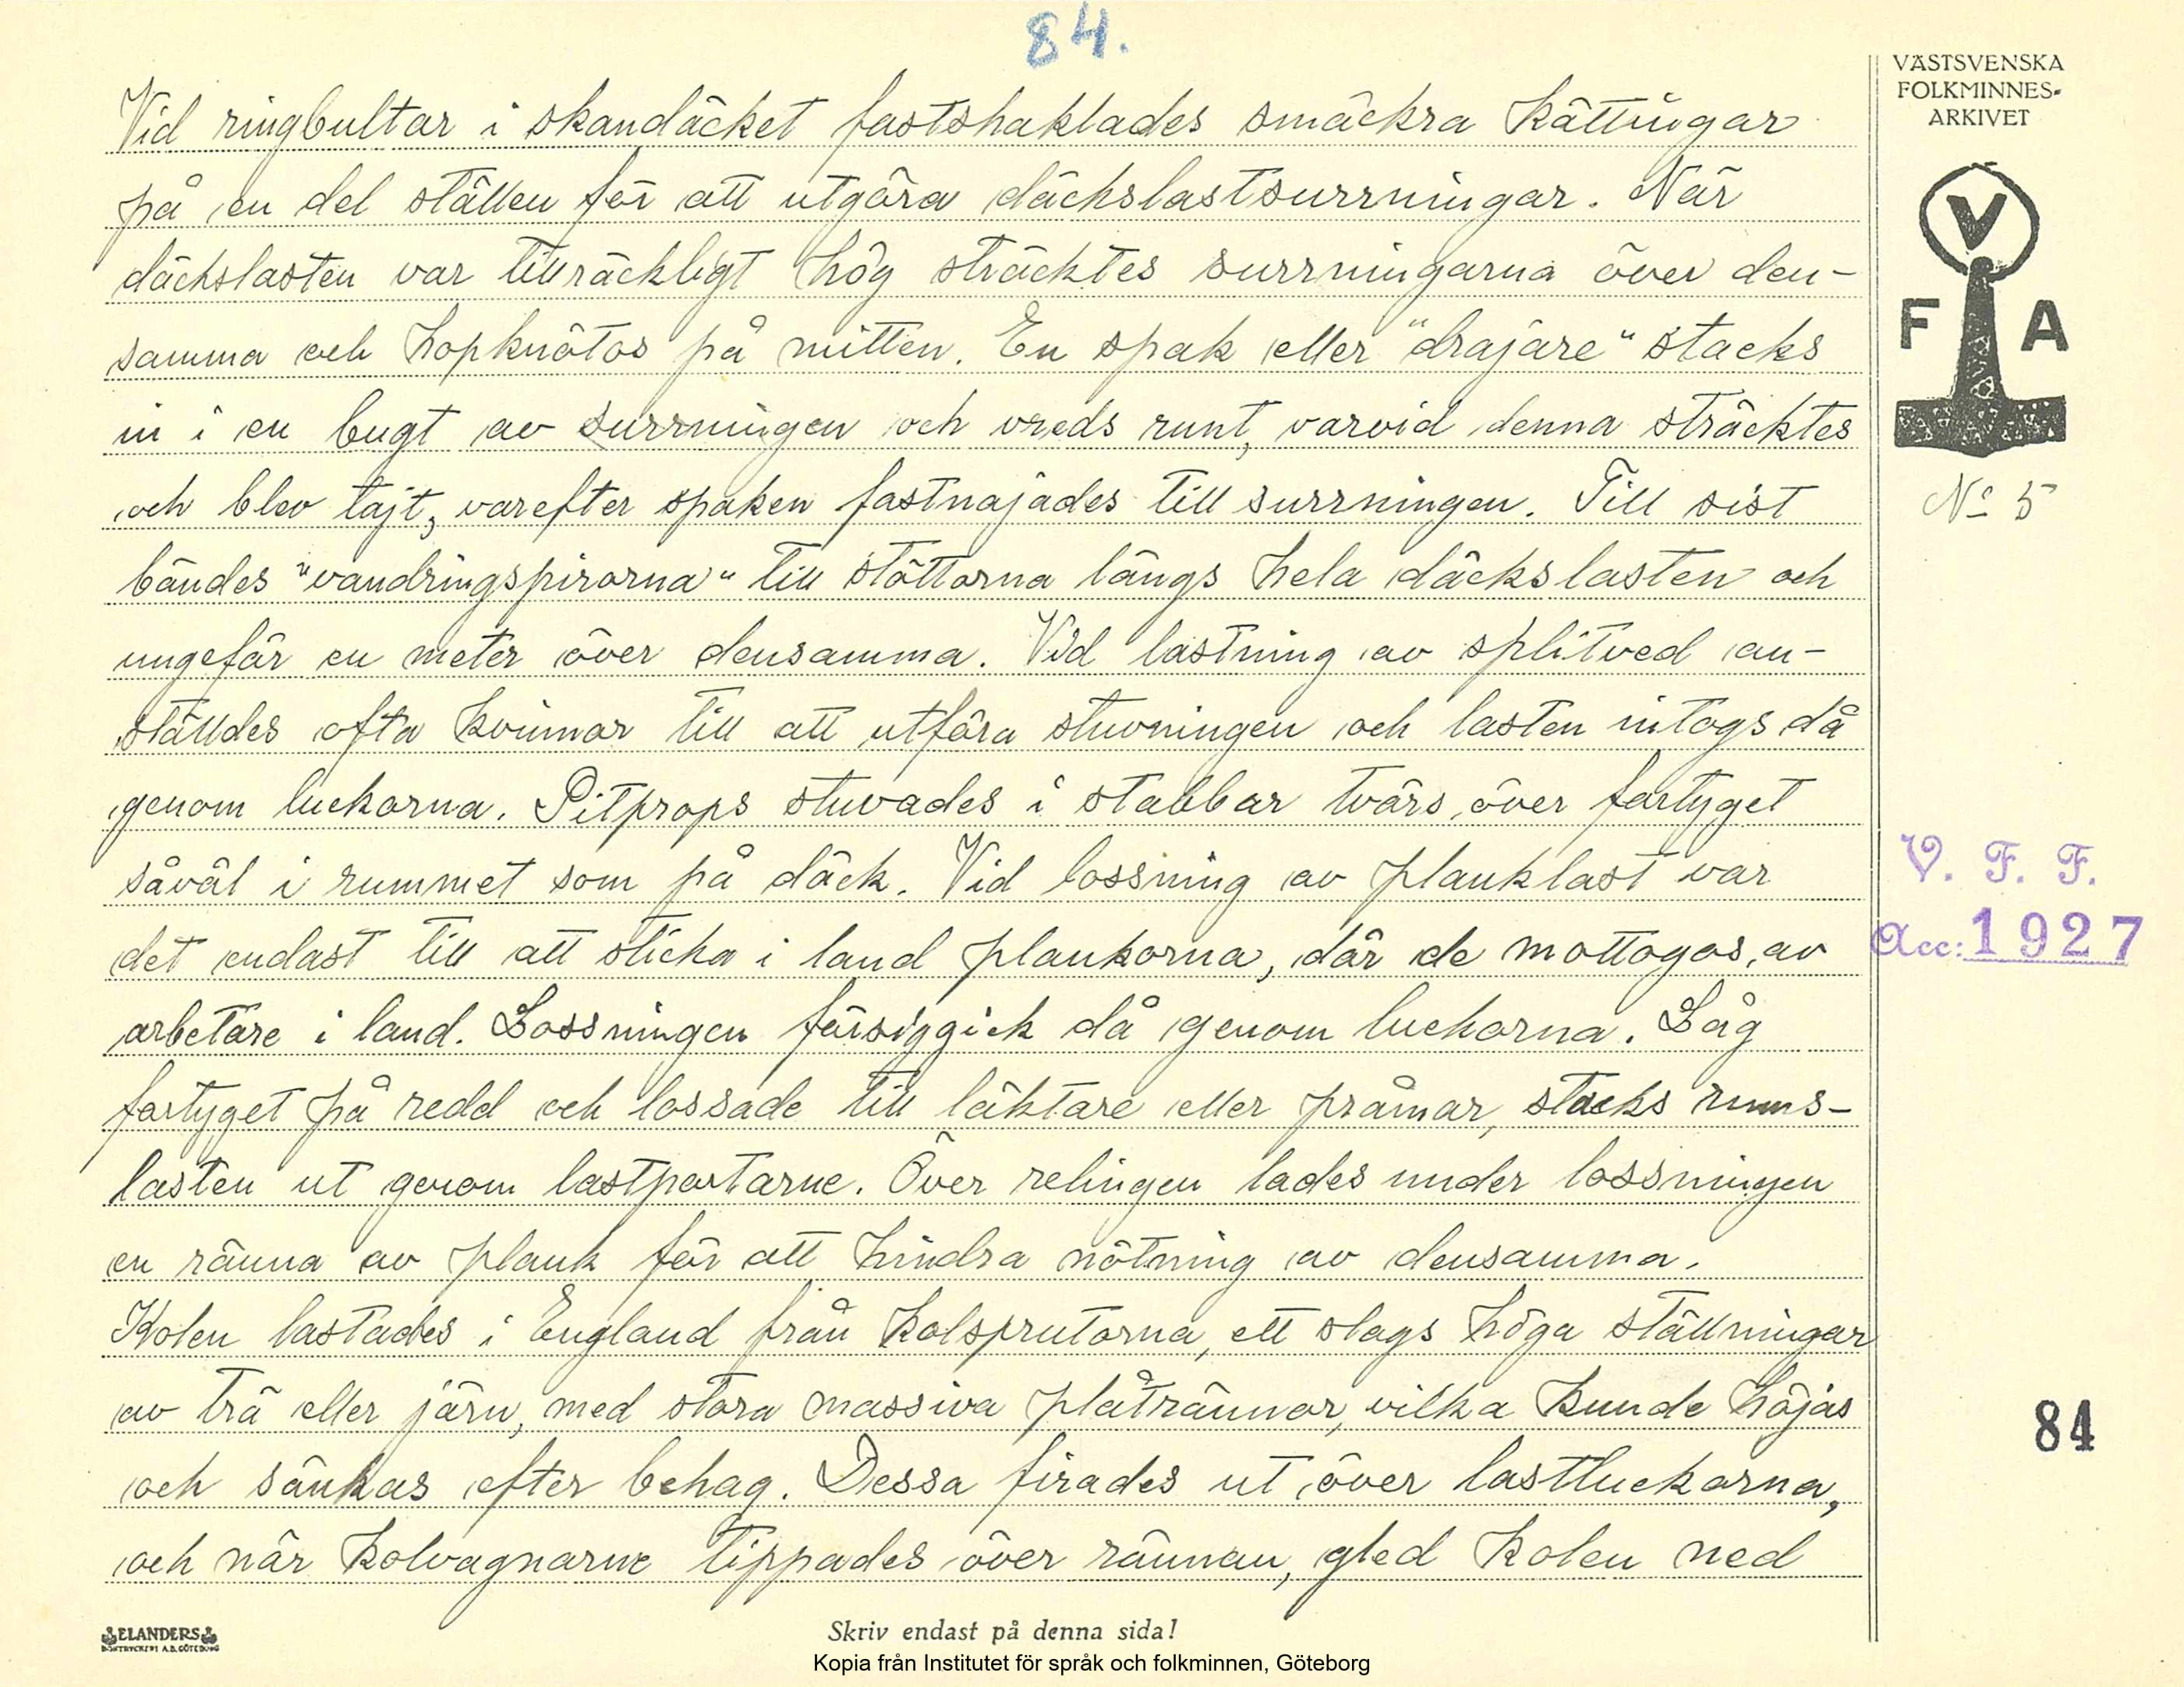 84.
Vid ringbultar i skandäcket fastshaklades smäckra kättingar
på en del ställen för att utgöra däckslastsurrningar. När
däckslasten var tillräckligt hög sträcktes surrningarna över den-
samma och hopknötos på mitten. En spak eller "drajare" stacks
in i en bugt av surrningen och vreds runt, varvid denna sträcktes
och blev tajt, varefter spaken fastnajades till surrningen. Till sist
bändes "vandringspirorna" till stöttorna längs hela däckslasten och
ungefär en meter över densamma. Vid lastning av splitved an-
ställdes ofta kvinnor till att utföra stuvningen och lasten intogs då
genom luckorna. Pitprops stuvades i stabbar tvärs över fartyget
såväl i rummet som på däck. Vid lossning av planklast var
det endast till att sticka i land plankorna, där de mottogos av
arbetare i land. Lossningen försiggick då genom luckorna. Låg
fartyget på redd och lossade till läktare eller pråmar, stacks rums-
lasten ut genom lastportarne. Över relingen lades under lossningen
en ränna av plank för att hindra nötning av densamma.
Kolen lastades i England från kolsprutorna, ett slags höga ställningar
av trä eller järn, med stora massiva plåtrännor, vilka kunde höjas
och sänkas efter behag. Dessa firades ut över lastluckorna,
och när kolvagnarne tippades över rännan, gled kolen ned
VÄSTSVENSKA
FOLKMINNES-
ARKIVET
V
F A
No 5
V. F. F.
Acc: 1927
84
ELANDERS
BOKTRYCKERI A.B. GÖTEBORG
Skriv endast på denna sida!
Kopia från Institutet för språk och folkminnen, Göteborg